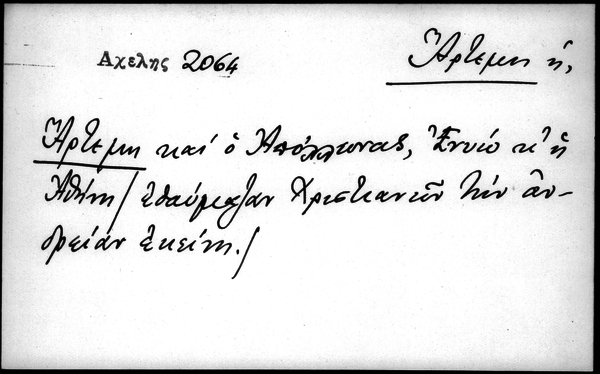 Αχελης 2064
Ἄρτεμη ἡ,
Ἄρτεμη καί ὁ Ἀπόλλωνας, Ἐνυώ κ' ἡ
Ἀθήνη/ ἐθαύμαξαν Χριστιανῶν τήν ἀν-
δρείαν ἐκείνη./